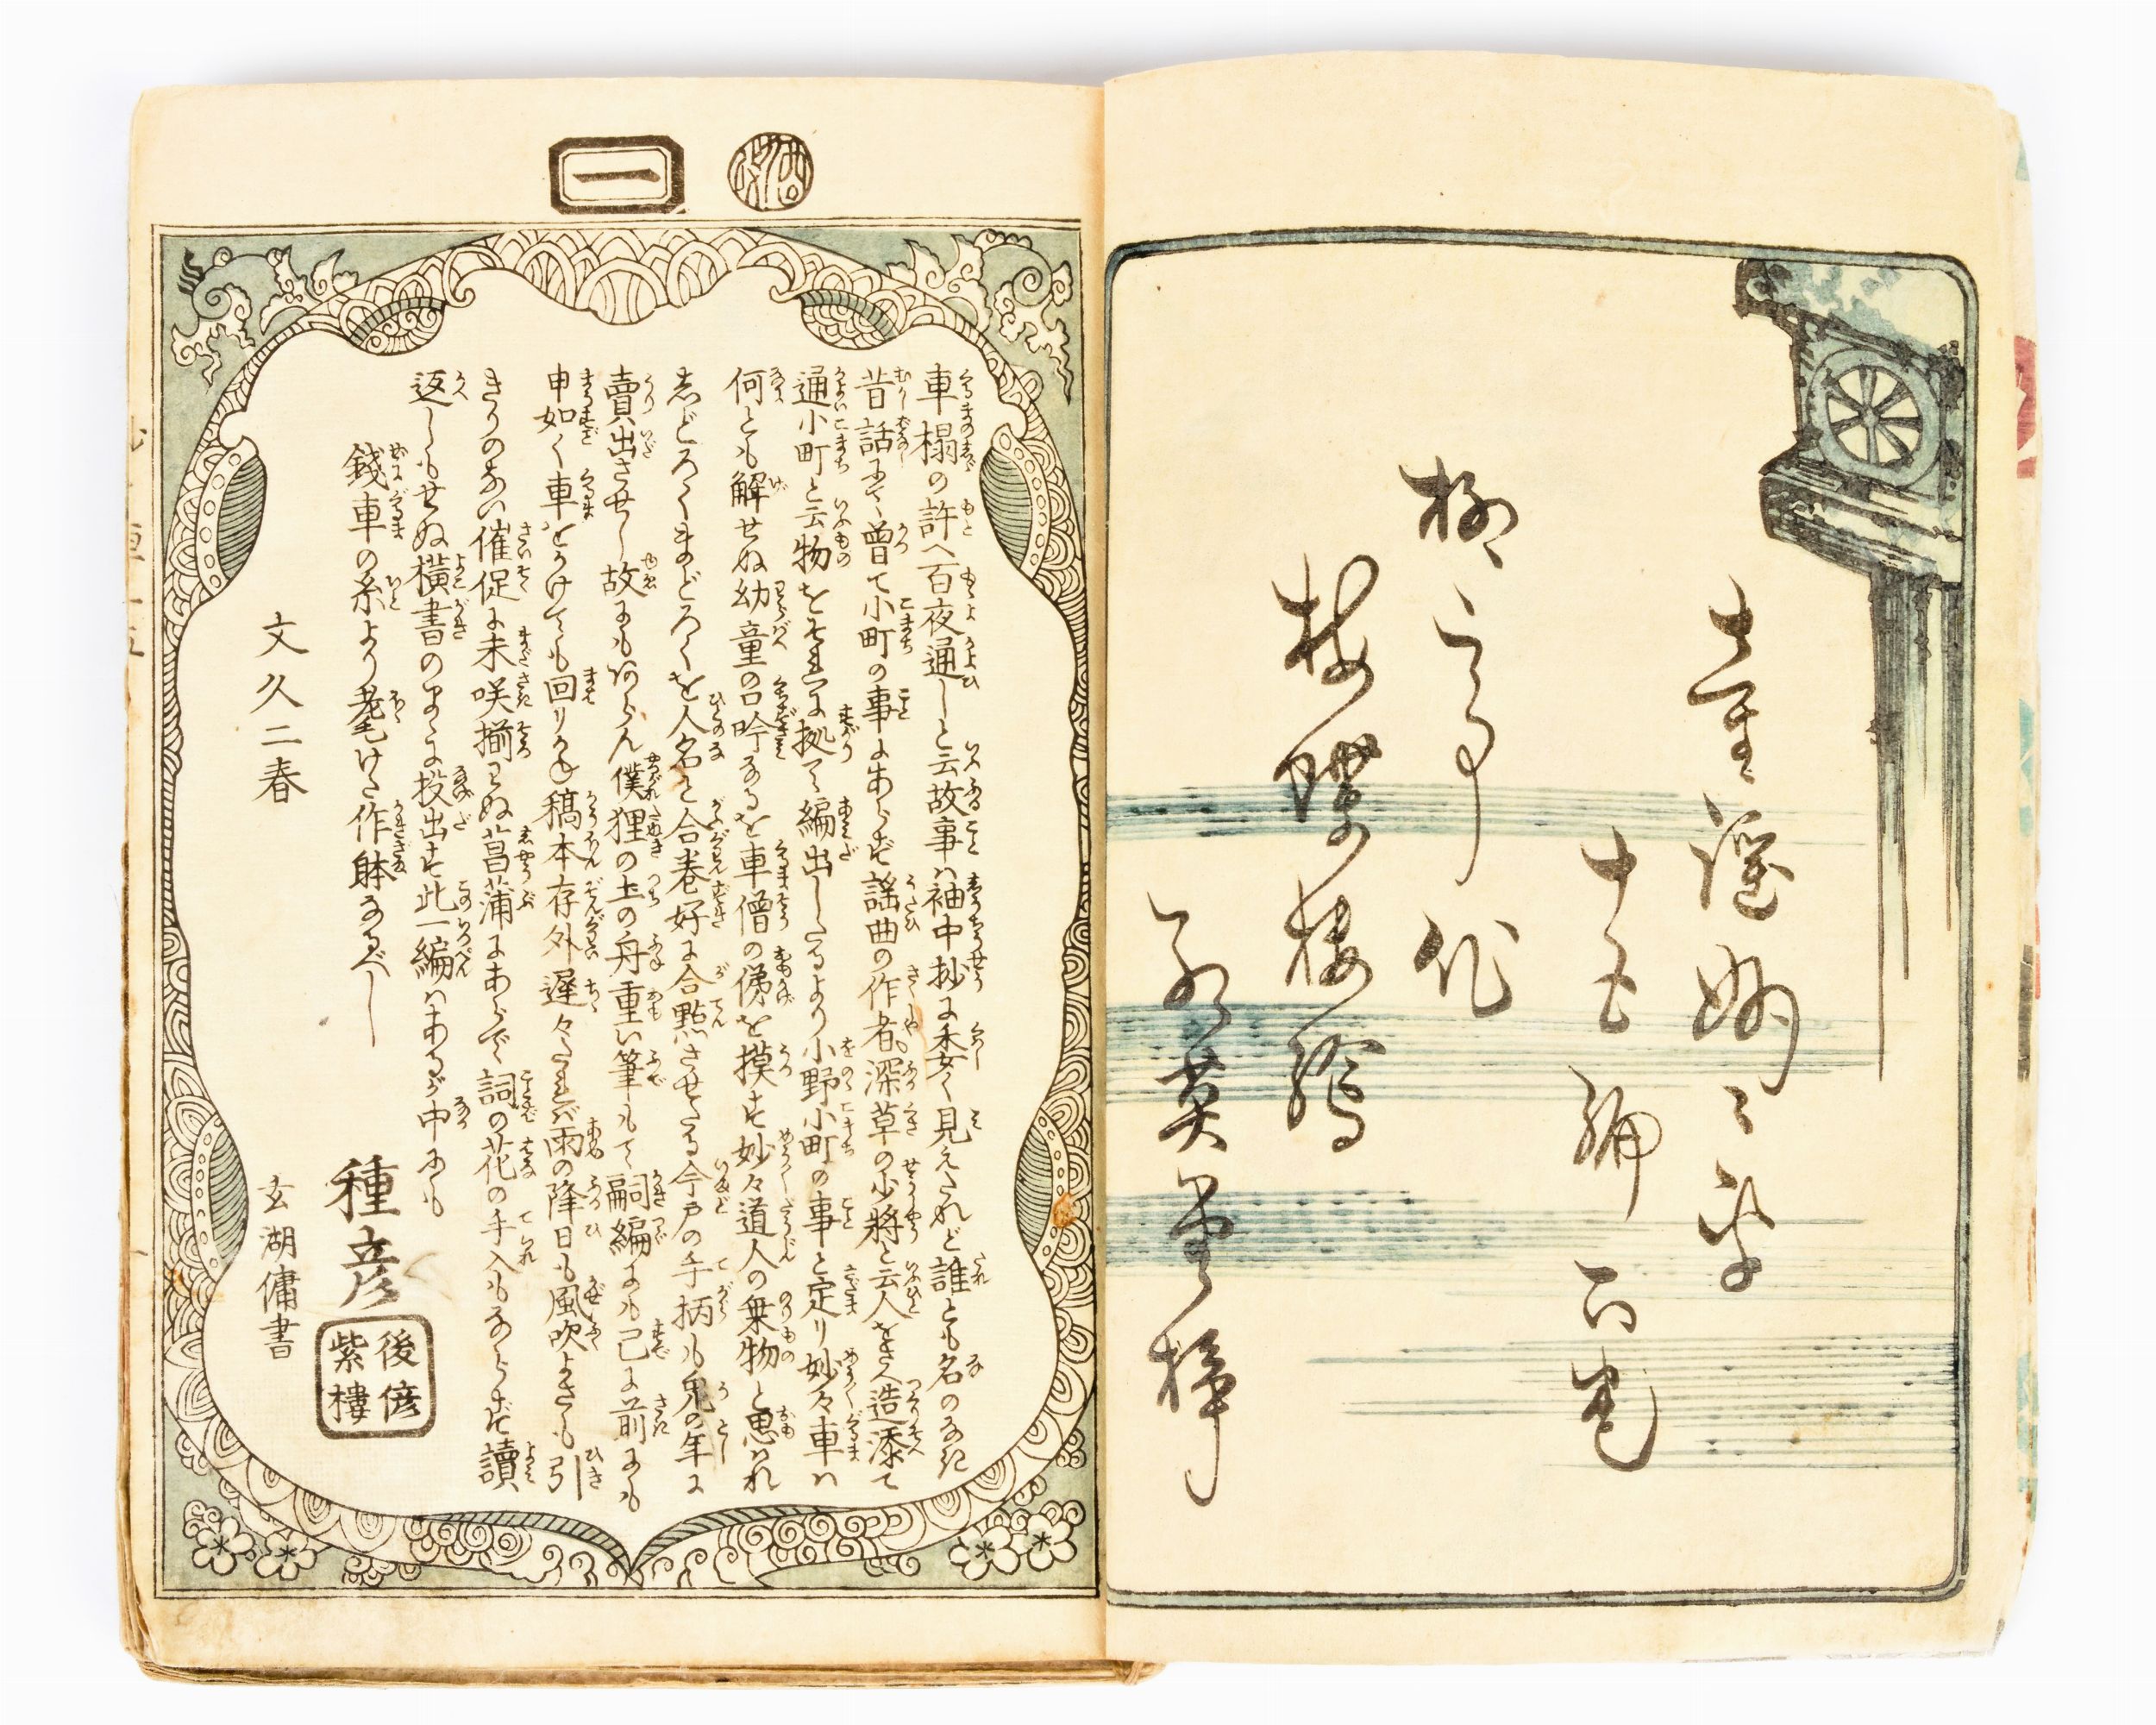 童謡妙々車
十五編
柳亭作
梅蝶樓繪
紅英堂梓
一
車榻の許へ百夜通しと云故事ハ袖中抄に委く見えたれど誰とも名のなき
昔話にて曽て小町の事にあらず謡曲の作者深草の少將と云人をさへ造添て
通小町と云物をそれに拠て編出したるより小野小町の事と定り妙々車ハ
何とも解せぬ幼童の口吟なるを車僧の俤を摸す妙々道人の乗物と思はれ
志どろくまのどろくを人名と合巻好に合點させたる今戸の手柄も兎の年に
賣出させし故にもあらん僕狸の土の舟重い筆もて嗣編にも已に前にも
申如く車をかけても回りかね稿本存外遅々たれバ雨の降日も風吹よさも引
きりのない催促に未咲揃ハぬ菖蒲にあらで詞の花の手入もならず讀
返しもせぬ横書のまゝに投出す此一編ハあるが中にも
錢車の糸より耄けた作躰なるべし
文久二春
種彦
後偐
紫樓
玄湖傭書